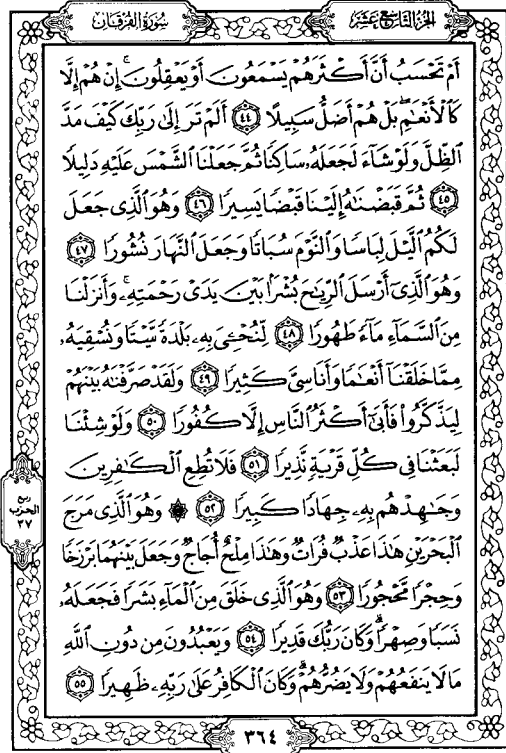 الجزء التاسع عشر
سورة الفرقان
أَمْ تَحْسَبُ أَنَّ أَكْثَرَهُمْ يَسْمَعُونَ أَوْ يَعْقِلُونَ ۚ إِنْ هُمْ إِلَّا
كَٱلْأَنْعَٰمِ ۖ بَلْ هُمْ أَضَلُّ سَبِيلًا ٤٤ أَلَمْ تَرَ إِلَىٰ رَبِّكَ كَيْفَ مَدَّ
ٱلظِّلَّ وَلَوْ شَآءَ لَجَعَلَهُۥ سَاكِنًا ثُمَّ جَعَلْنَا ٱلشَّمْسَ عَلَيْهِ دَلِيلًا
٤٥ ثُمَّ قَبَضْنَٰهُ إِلَيْنَا قَبْضًا يَسِيرًا ٤٦ وَهُوَ ٱلَّذِى جَعَلَ
لَكُمُ ٱلَّيْلَ لِبَاسًا وَٱلنَّوْمَ سُبَاتًا وَجَعَلَ ٱلنَّهَارَ نُشُورًا ٤٧
وَهُوَ ٱلَّذِىٓ أَرْسَلَ ٱلرِّيَٰحَ بُشْرًۢا بَيْنَ يَدَىْ رَحْمَتِهِۦ ۚ وَأَنزَلْنَا
مِنَ ٱلسَّمَآءِ مَآءً طَهُورًا ٤٨ لِّنُحْۦِىَ بِهِۦ بَلْدَةً مَّيْتًا وَنُسْقِيَهُۥ
مِمَّا خَلَقْنَآ أَنْعَٰمًا وَأَنَاسِىَّ كَثِيرًا ٤٩ وَلَقَدْ صَرَّفْنَٰهُ بَيْنَهُمْ
لِيَذَّكَّرُوا۟ فَأَبَىٰٓ أَكْثَرُ ٱلنَّاسِ إِلَّا كُفُورًا ٥٠ وَلَوْ شِئْنَا
لَبَعَثْنَا فِى كُلِّ قَرْيَةٍ نَّذِيرًا ٥١ فَلَا تُطِعِ ٱلْكَٰفِرِينَ
وَجَٰهِدْهُم بِهِۦ جِهَادًا كَبِيرًا ٥٢ ۞ وَهُوَ ٱلَّذِى مَرَجَ
ٱلْبَحْرَيْنِ هَٰذَا عَذْبٌ فُرَاتٌ وَهَٰذَا مِلْحٌ أُجَاجٌ وَجَعَلَ بَيْنَهُمَا بَرْزَخًا
وَحِجْرًا مَّحْجُورًا ٥٣ وَهُوَ ٱلَّذِى خَلَقَ مِنَ ٱلْمَآءِ بَشَرًا فَجَعَلَهُۥ
نَسَبًا وَصِهْرًا ۗ وَكَانَ رَبُّكَ قَدِيرًا ٥٤ وَيَعْبُدُونَ مِن دُونِ ٱللَّهِ
مَا لَا يَنفَعُهُمْ وَلَا يَضُرُّهُمْ ۗ وَكَانَ ٱلْكَافِرُ عَلَىٰ رَبِّهِۦ ظَهِيرًا ٥٥
ربع
الحزب
٣٧
٣٦٤